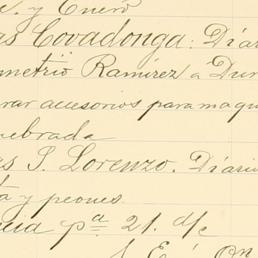 y Enero
as Covadonga: Diar
metrio Ramirez a Dur
rar accesorios para maqu
uebrada
es S. Lorenzo. Diari
ta y peones
cia pª 21. d/c